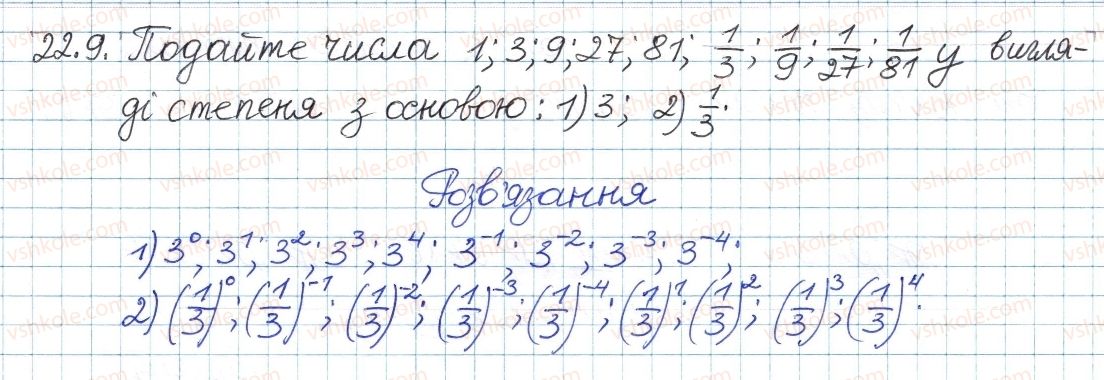 22.9. Подайте числа 1; 3; 9; 27; 81; 1/3; 1/9; 1/27; 1/81 у вигля-
ді степеня з основою: 1) 3; 2) 1/3.
Розв'язання
1) 3⁰; 3¹; 3²; 3³; 3⁴; 3⁻¹; 3⁻²; 3⁻³; 3⁻⁴;
2) (1/3)⁰; (1/3)⁻¹; (1/3)⁻²; (1/3)⁻³; (1/3)⁻⁴; (1/3)¹; (1/3)²; (1/3)³; (1/3)⁴.